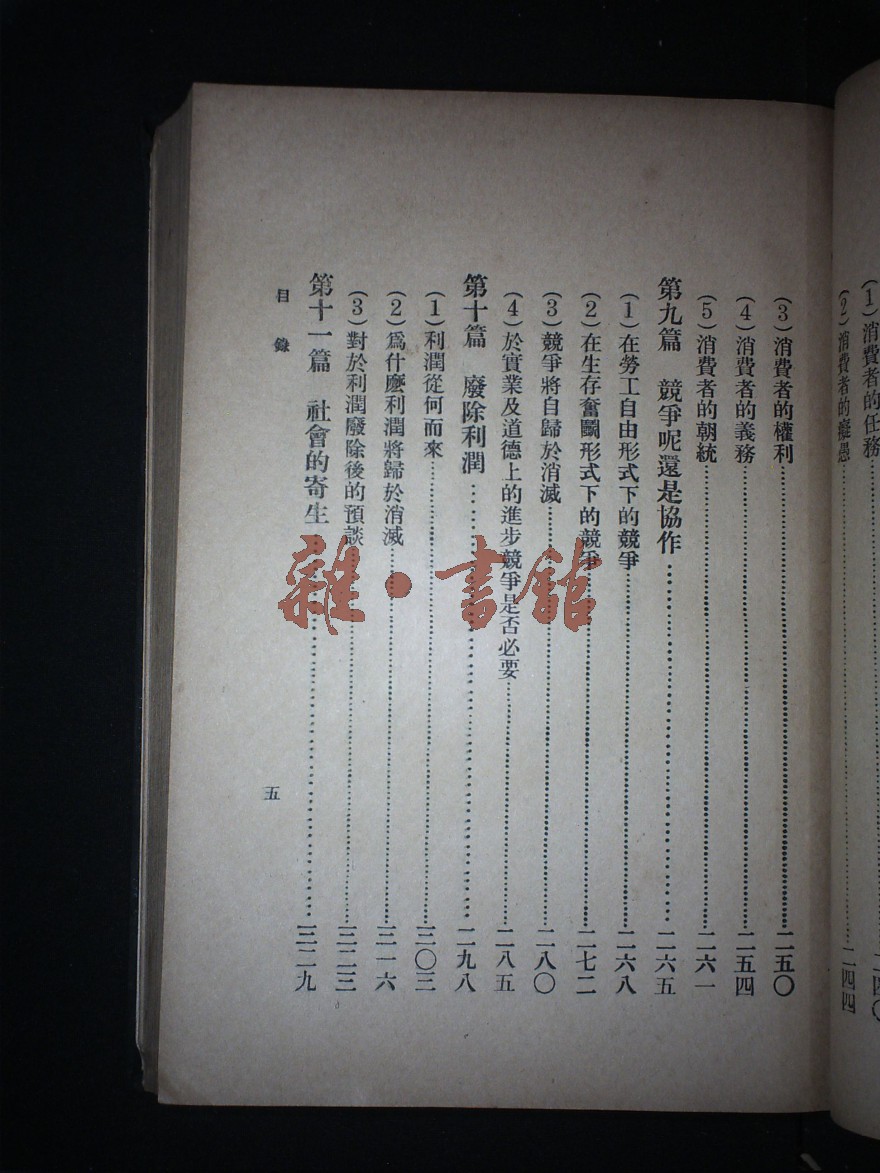 (1)消費者的任務……二四〇
(2)消費者的癡愚……二四四
(3)消費者的權利……二五〇
(4)消費者的義務……二五四
(5)消費者的朝統……二六一
第九篇 競爭呢還是協作……二六五
(1)在勞工自由形式下的競爭……二六八
(2)在生存奮鬭形式下的競爭……二七二
(3)競爭將自歸於消滅……二八〇
(4)於實業及道德上的進步競爭是否必要……二八五
第十篇 廢除利潤……二九八
(1)利潤從何而來……三〇三
(2)爲什麽利潤將歸於消滅……三一六
(3)對於利潤廢除後的預談……三二三
第十一篇 社會的寄生……三二九
目錄
五
雜·書館